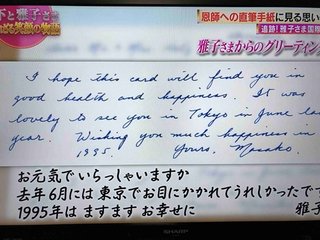 恩師への直筆手紙に見る思い
下と雅子さま
笑顔の物語
追跡!雅子さま国際
雅子さまからのグリーティン
I hope this card will find you in
good health and happiness. It was
lovely to see you in Tokyo in June last
year. Wishing you much happiness in
1995. Yours, Masako.
お元気でいらっしゃいますか
去年6月には東京でお目にかかれてうれしかったで
1995年は ますます お幸せに
雅子
SHARP